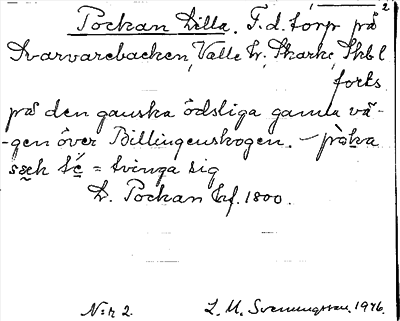 2
Pockan Lilla. F.d. torp på
Svarvarebacken, Valle hr, Skarke, Skbl
forts
på den ganska ödsliga gamla vä-
-gen över Billingenskogen. – pòka
sæk té = tvinga sig
L. Pockan Krf. 1800.
N:r 2.
L. M. Svenungsson. 1976.